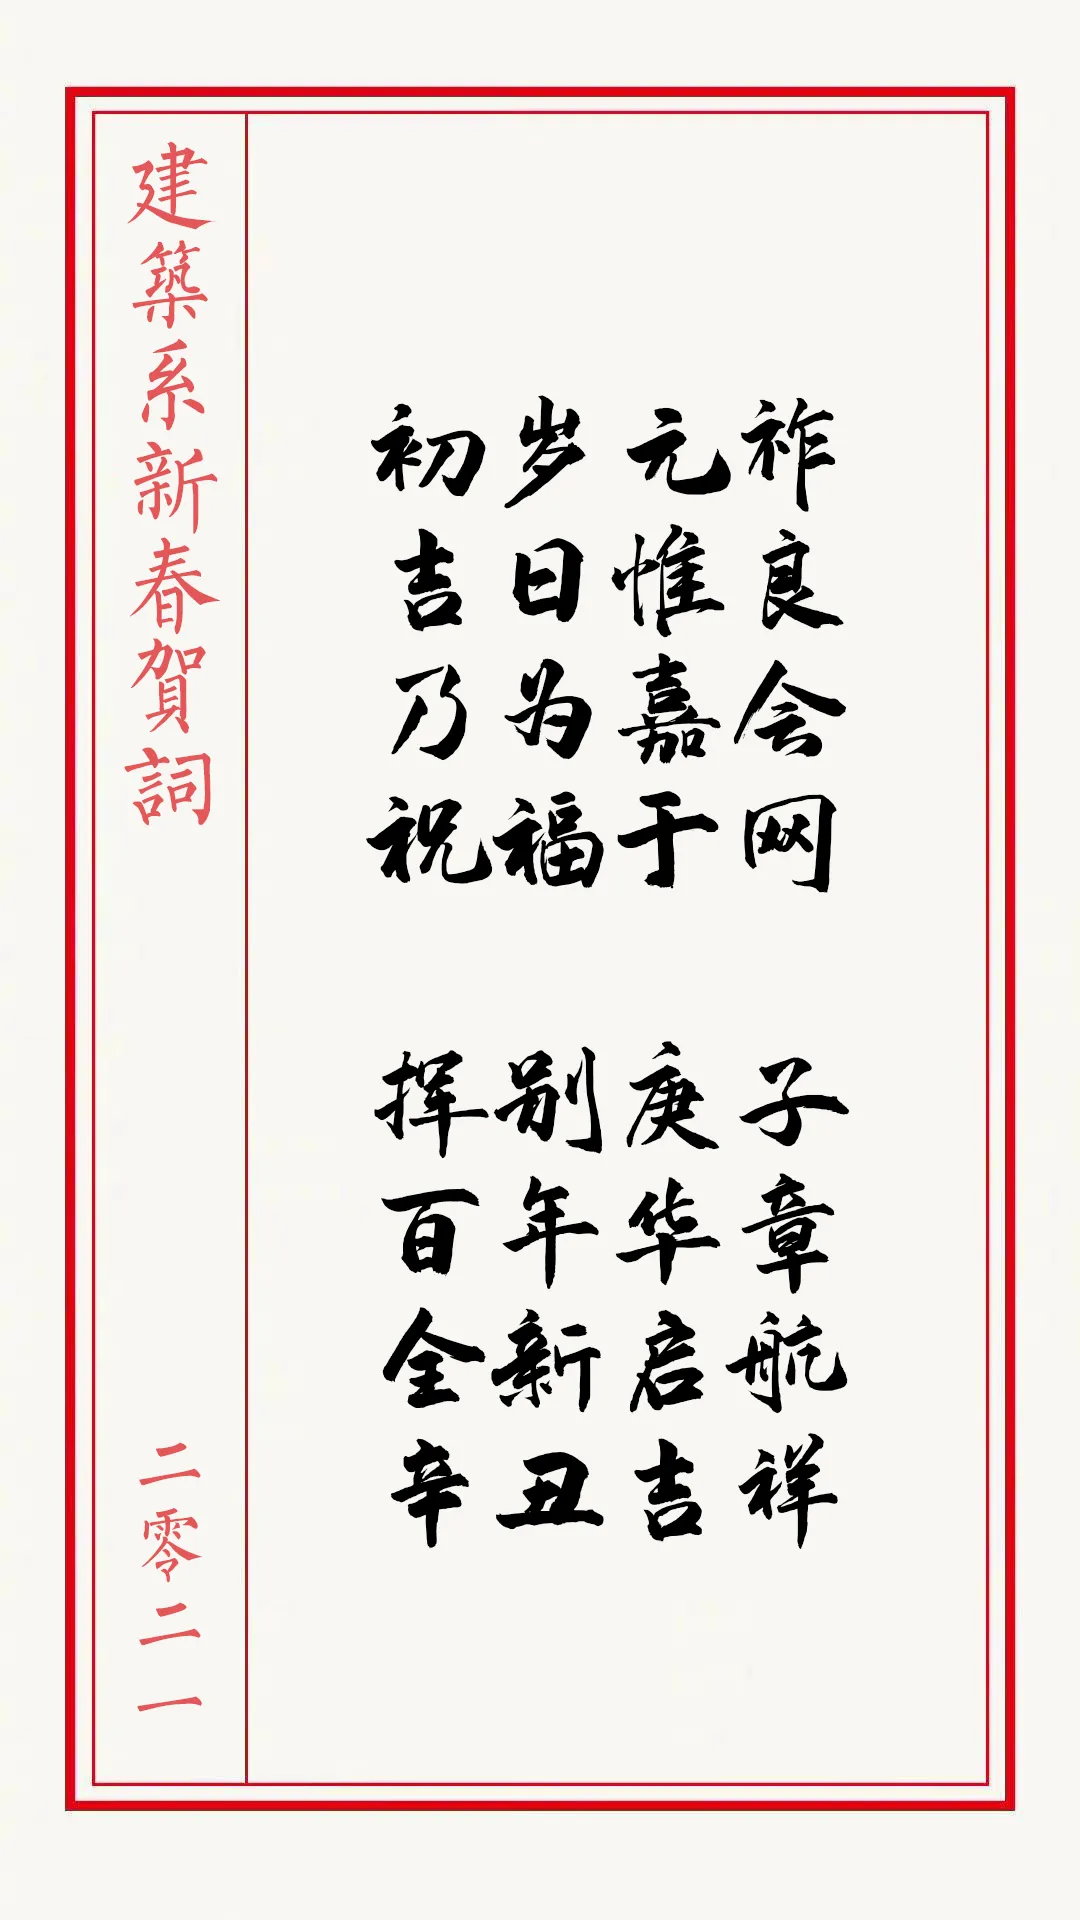 建築系新春賀詞
二零二一
初岁元祚
吉日惟良
乃为嘉会
祝福于网
挥别庚子
百年华章
全新启航
辛丑吉祥